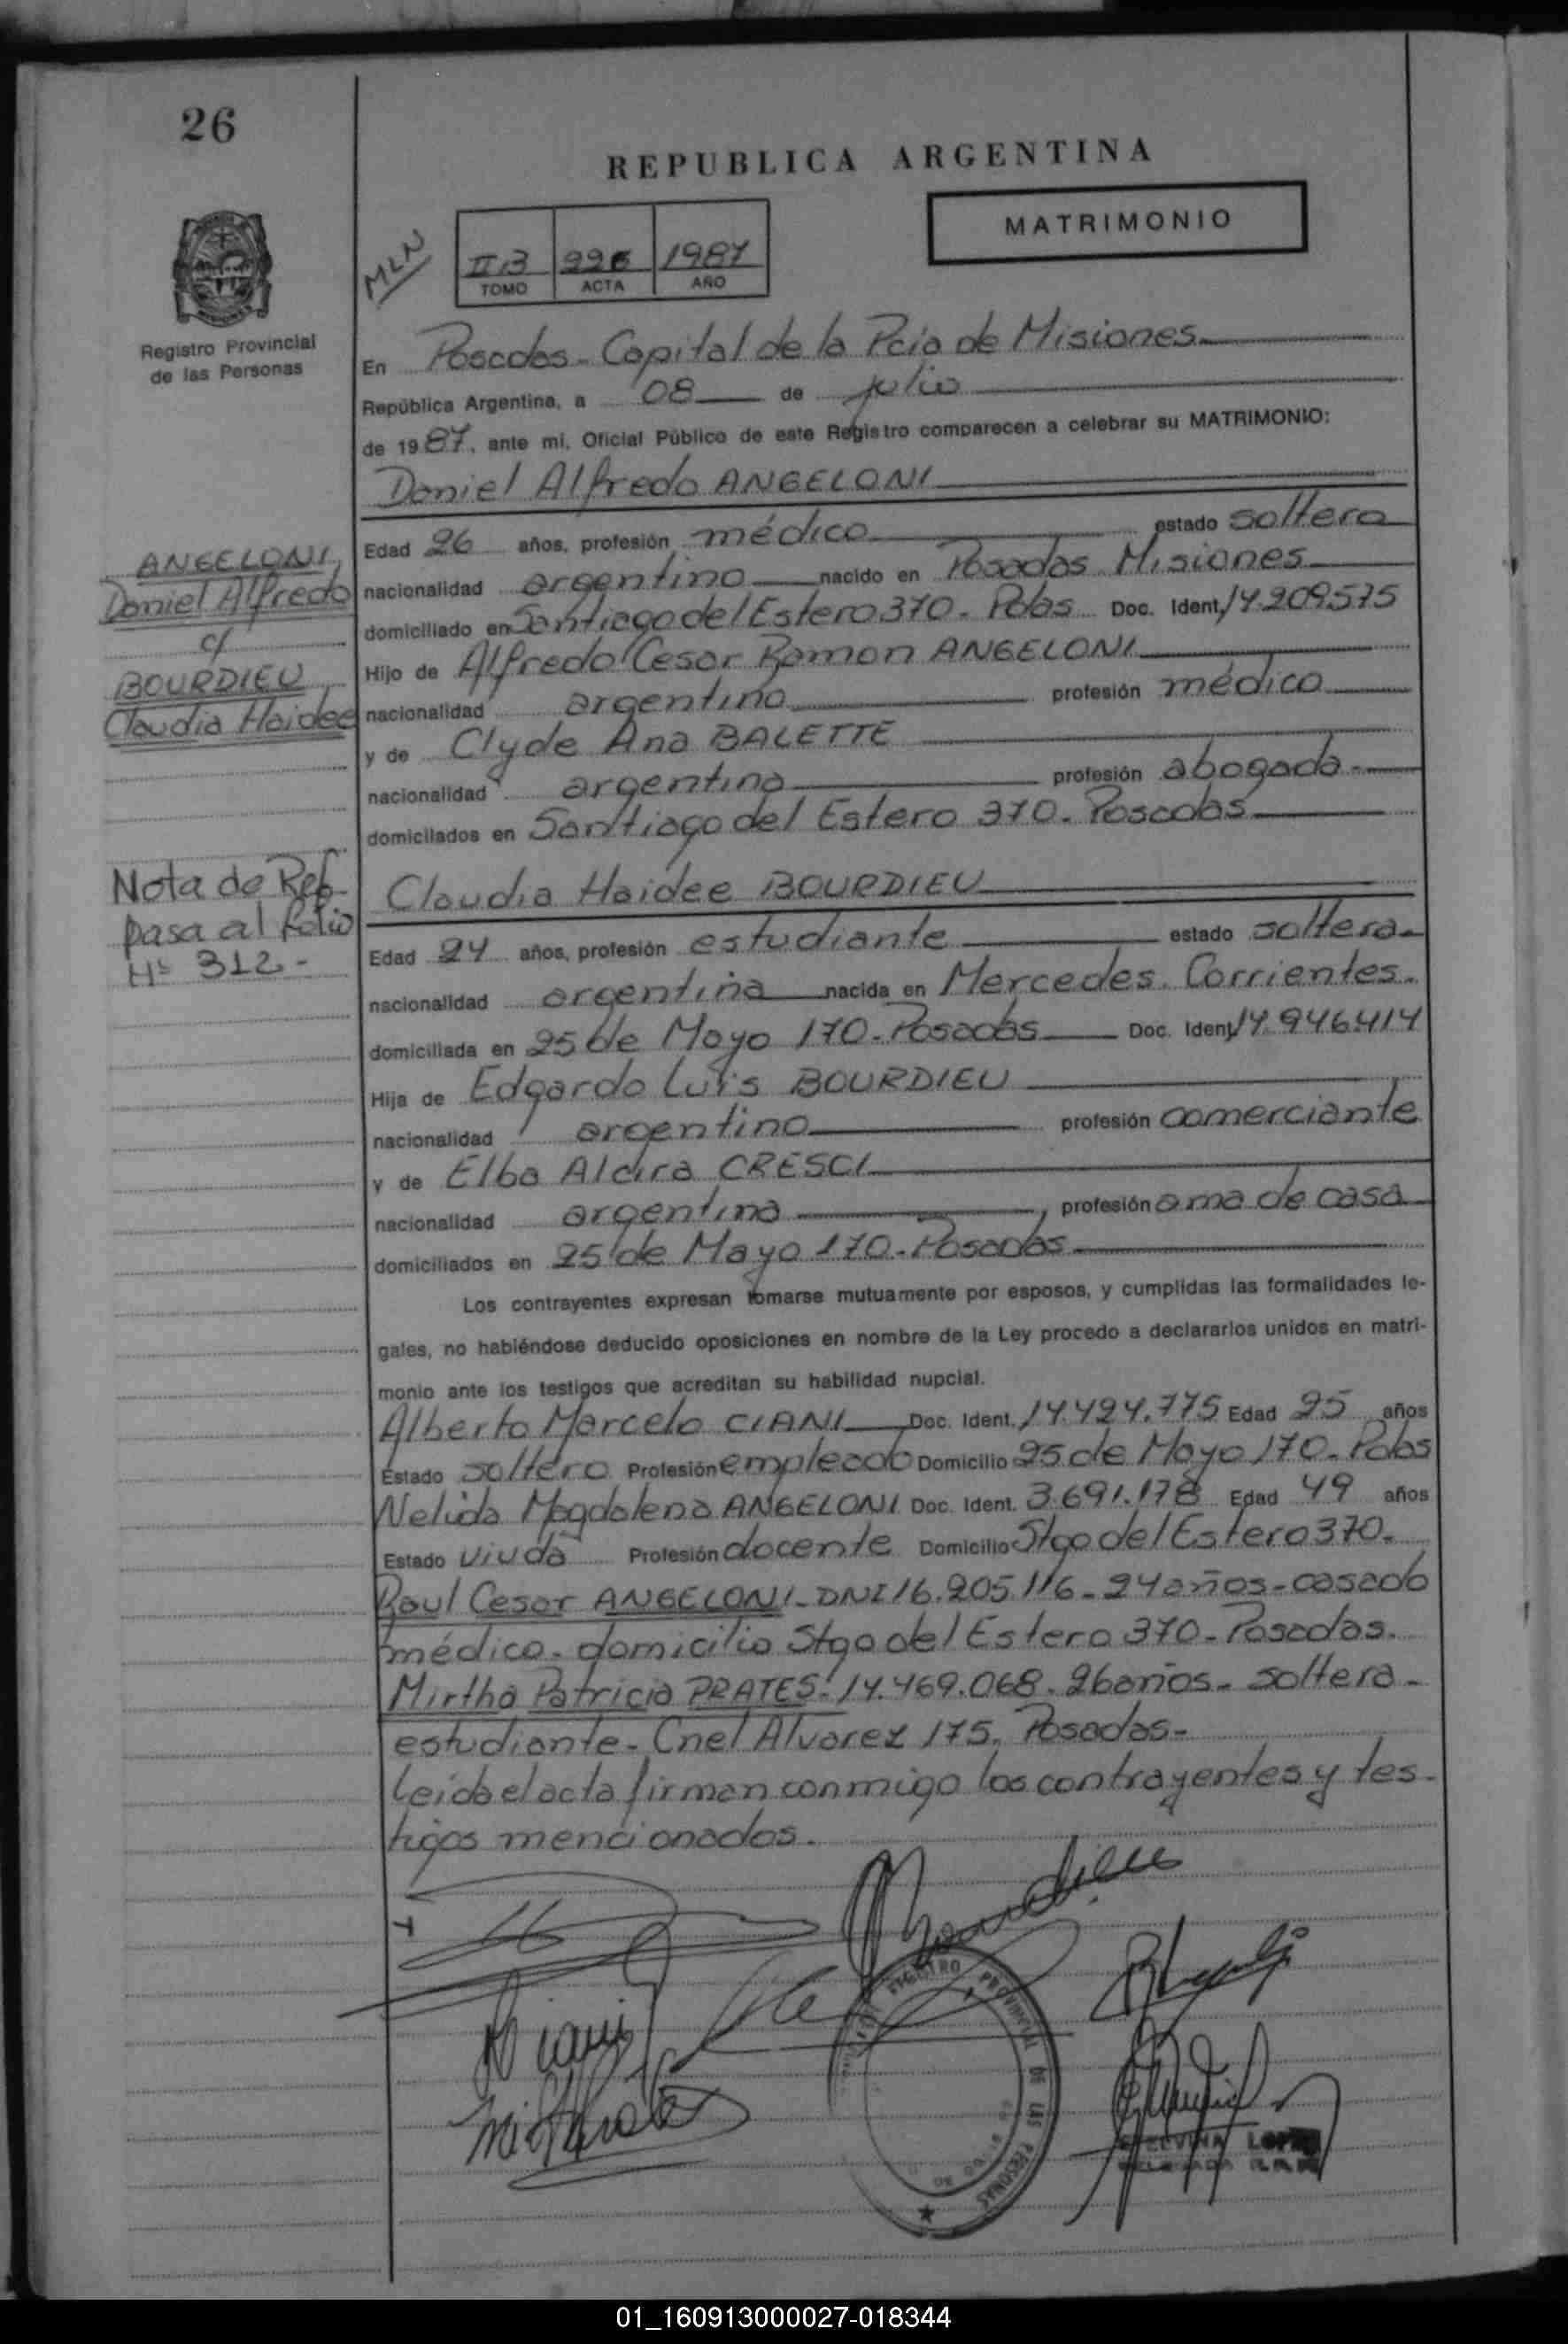 26
REPUBLICA ARGENTINA
MATRIMONIO
MLN
II.B 226 1987
TOMO ACTA AÑO
Registro Provincial
de las Personas
En Posadas - Capital de la Pcia de Misiones
República Argentina, a 08 de julio
de 1987, ante mi, Oficial Público de este Registro comparecen a celebrar su MATRIMONIO:
Daniel Alfredo ANGELONI
Edad 26 años, profesión médico estado soltero
nacionalidad argentino nacido en Posadas Misiones
domiciliado en Santiago del Estero 370 - Pdas Doc. Ident. 14.209.575
Hijo de Alfredo Cesar Ramon ANGELONI
nacionalidad argentino profesión médico
y de Clyde Ana BALETTE
nacionalidad argentina profesión abogada -
domiciliados en Santiago del Estero 370 - Posadas
ANGELONI,
Daniel Alfredo
c/
BOURDIEU
Claudia Haidee
Nota de Ref
pasa al folio
Nº 312 -
Claudia Haidee BOURDIEU
Edad 24 años, profesión estudiante estado soltera -
nacionalidad argentina nacida en Mercedes Corrientes -
domiciliada en 25 de Mayo 170 - Posadas Doc. Ident. 14.946.414
Hija de Edgardo Luis BOURDIEU
nacionalidad argentino profesión comerciante
y de Elba Alcira CRESCI
nacionalidad argentina, profesión ama de casa
domiciliados en 25 de Mayo 170 - Posadas
Los contrayentes expresan tomarse mutuamente por esposos, y cumplidas las formalidades le-
gales, no habiéndose deducido oposiciones en nombre de la Ley procedo a declararlos unidos en matri-
monio ante los testigos que acreditan su habilidad nupcial.
Alberto Marcelo CIANI Doc. Ident. 14.424.775 Edad 25 años
Estado soltero Profesión empleado Domicilio 25 de Mayo 170 - Pdas
Nelida Magdalena ANGELONI Doc. Ident. 3.691.178 Edad 49 años
Estado viuda Profesión docente Domicilio Stgo del Estero 370 -
Raul Cesar ANGELONI - DNI 16.205.116 - 24 años - casado
médico - domicilio Stgo del Estero 370 - Posadas.
Mirtha Patricia PRATES - 14.469.068 - 26 años - soltera -
estudiante - Cnel Alvarez 175. Posadas -
Leida el acta firman conmigo los contrayentes y tes-
tigos mencionados.
Bourdieu
REGISTRO PROVINCIAL DE LAS PERSONAS
01_160913000027-018344